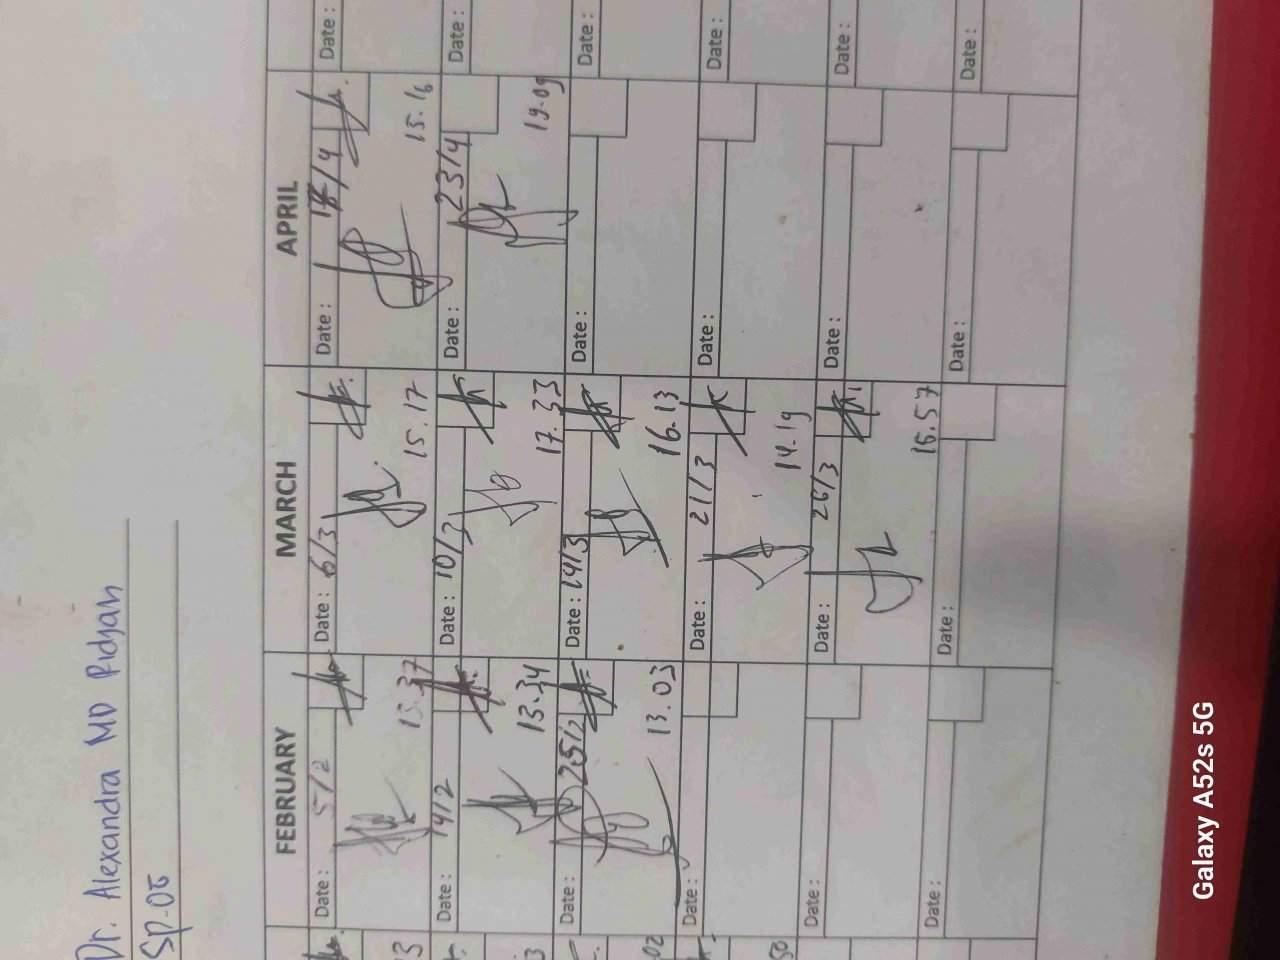 Dr. Alexandra MD Ridjan
SP.OT
FEBRUARY
MARCH
APRIL
Date : 5/2
15.37
Date : 6/3
15.17
Date : 17/4
15.16
Date :
Date : 14/2
13.34
Date : 10/3
17.33
Date : 23/4
19.09
Date :
Date : 25/2
13.03
Date : 14/3
16.13
Date :
Date :
Date :
Date : 21/3
14.19
Date :
Date :
Date :
Date : 26/3
Date :
Date :
Date :
Date :
Date :
Date :
Galaxy A52s 5G